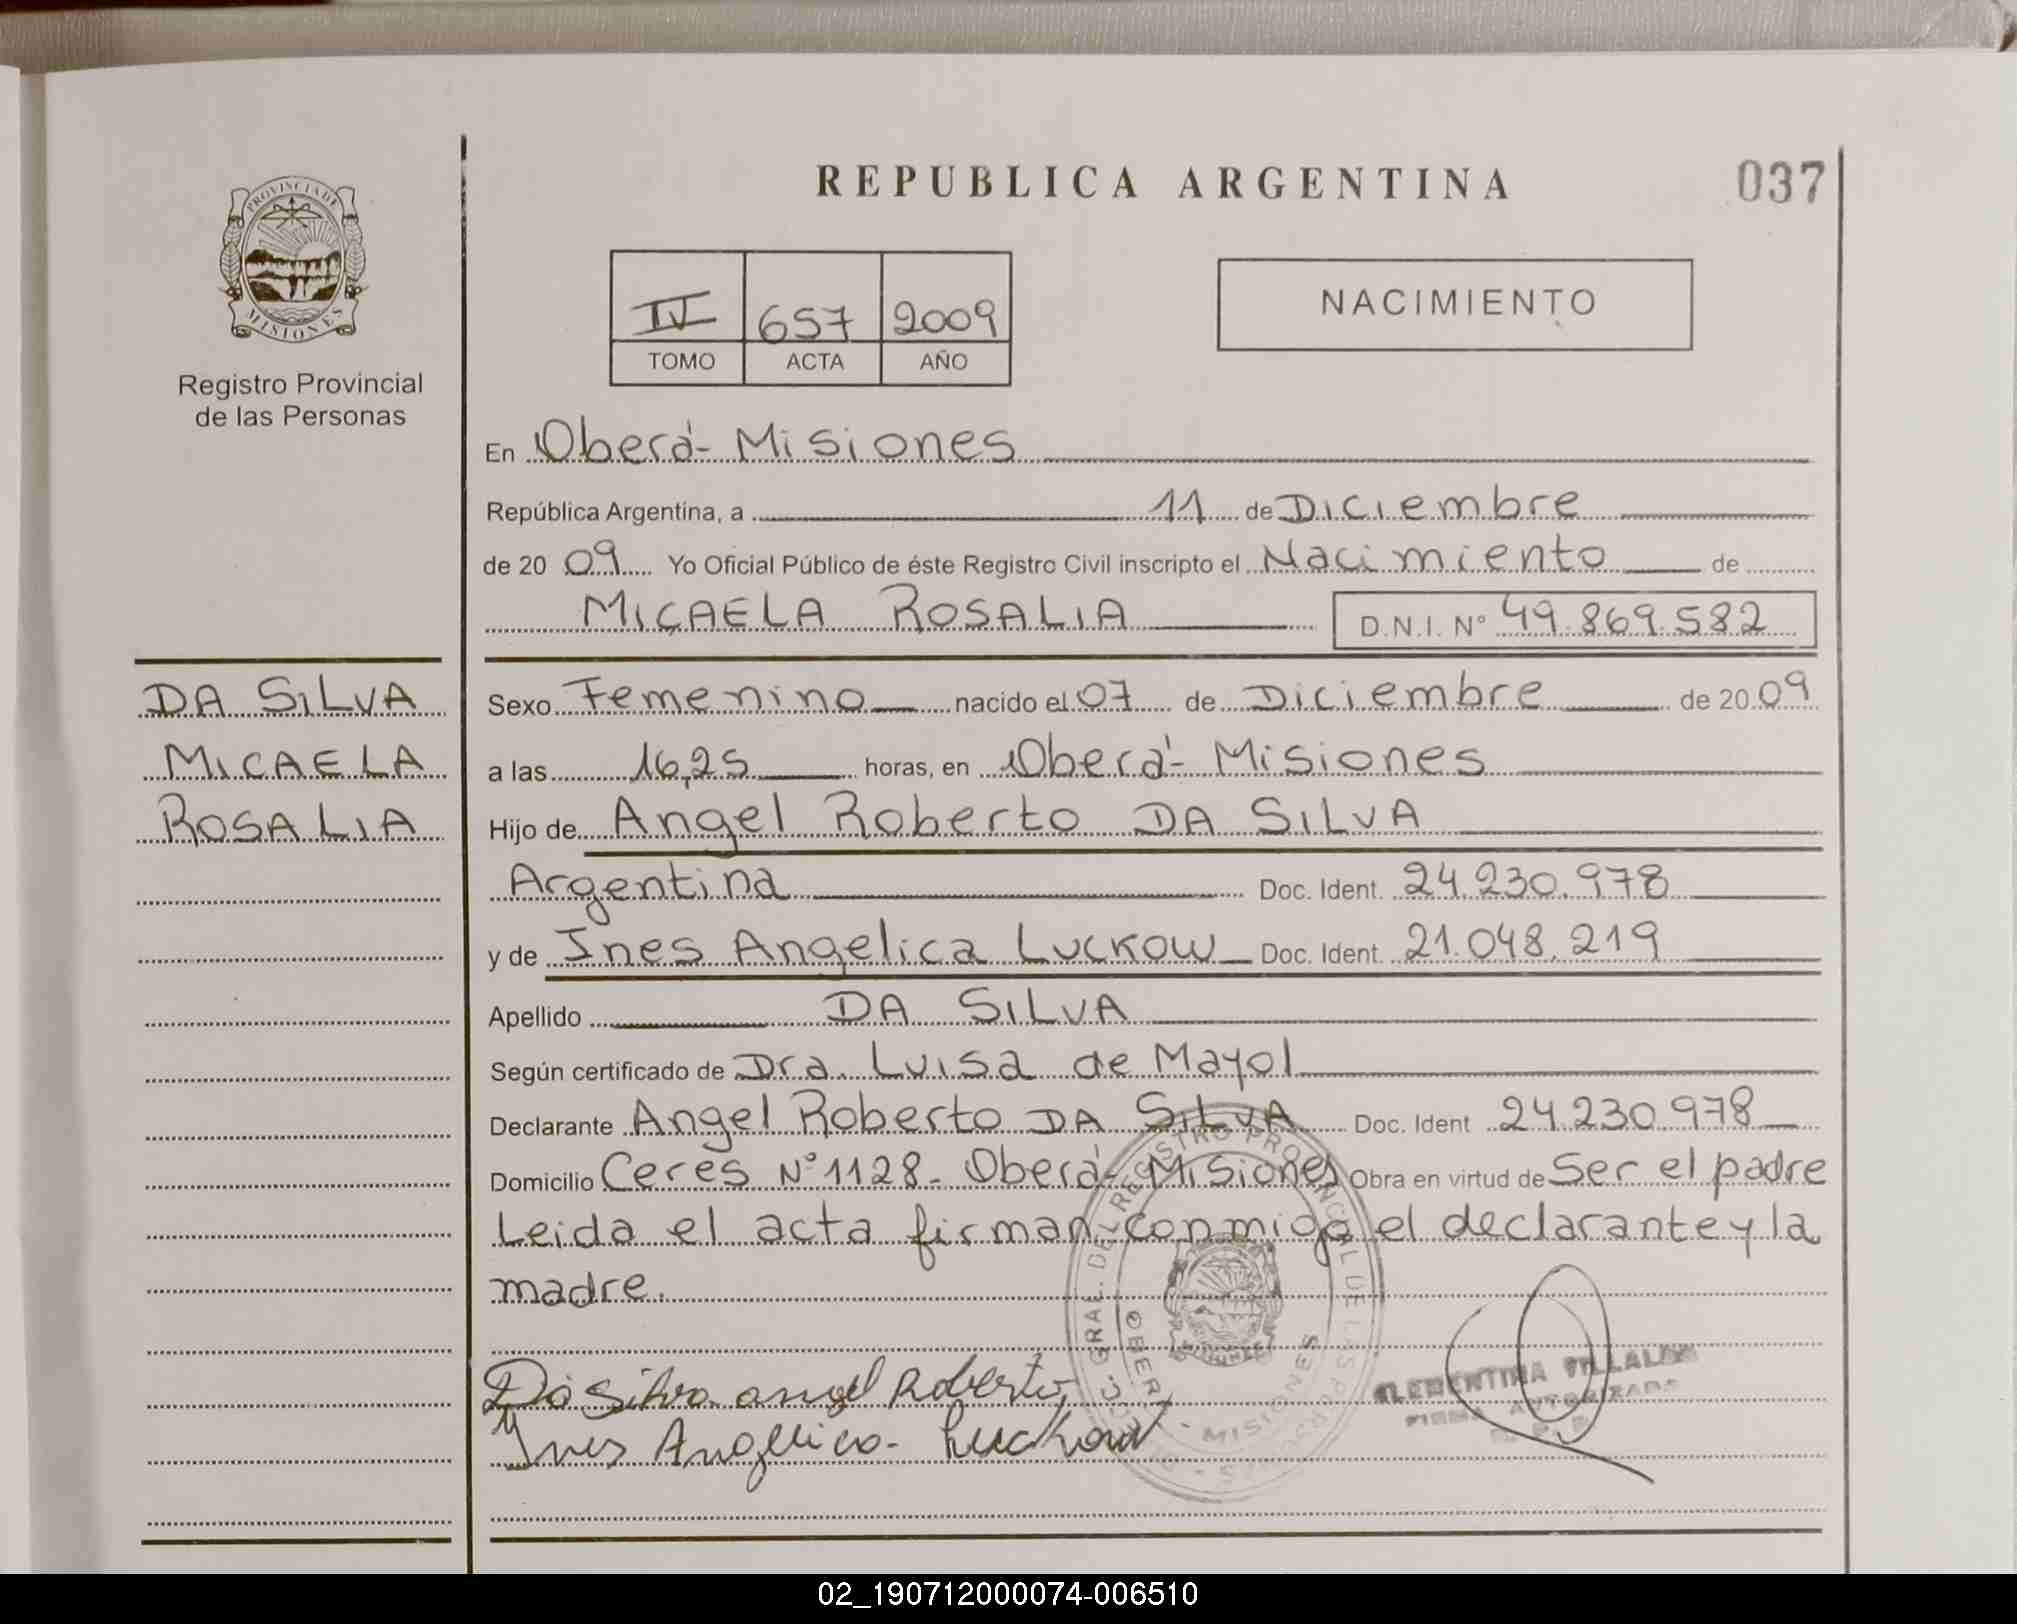 REPUBLICA ARGENTINA
037
PROVINCIA DE
MISIONES
Registro Provincial
de las Personas
IV 657 2009
TOMO ACTA AÑO
NACIMIENTO
En Oberá - Misiones
República Argentina, a 11 de Diciembre
de 20 09 Yo Oficial Público de éste Registro Civil inscripto el Nacimiento de
MICAELA ROSALIA D.N.I. Nº 49.869.582
DA SILVA
MICAELA
ROSALIA
Sexo Femenino nacido el 07 de Diciembre de 20 09
a las 16,25 horas, en Oberá - Misiones
Hijo de Angel Roberto DA SILVA
Argentina Doc. Ident. 24.230.978
y de Ines Angelica Luckow Doc. Ident. 21.048.219
Apellido DA SILVA
Según certificado de Dra. Luisa de Mayol
Declarante Angel Roberto DA SILVA Doc. Ident 24.230.978
Domicilio Ceres Nº 1128 - Oberá - Misiones Obra en virtud de Ser el padre
Leida el acta firman conmigo el declarante y la
madre.
Da Silva angel Roberto,
Ines Angelica - Luckow
GRAL. DEL REGISTRO PROVINCIAL DE LAS PERSONAS
OBERA - MISIONES
FIRMA AUTORIZADA
02_190712000074-006510